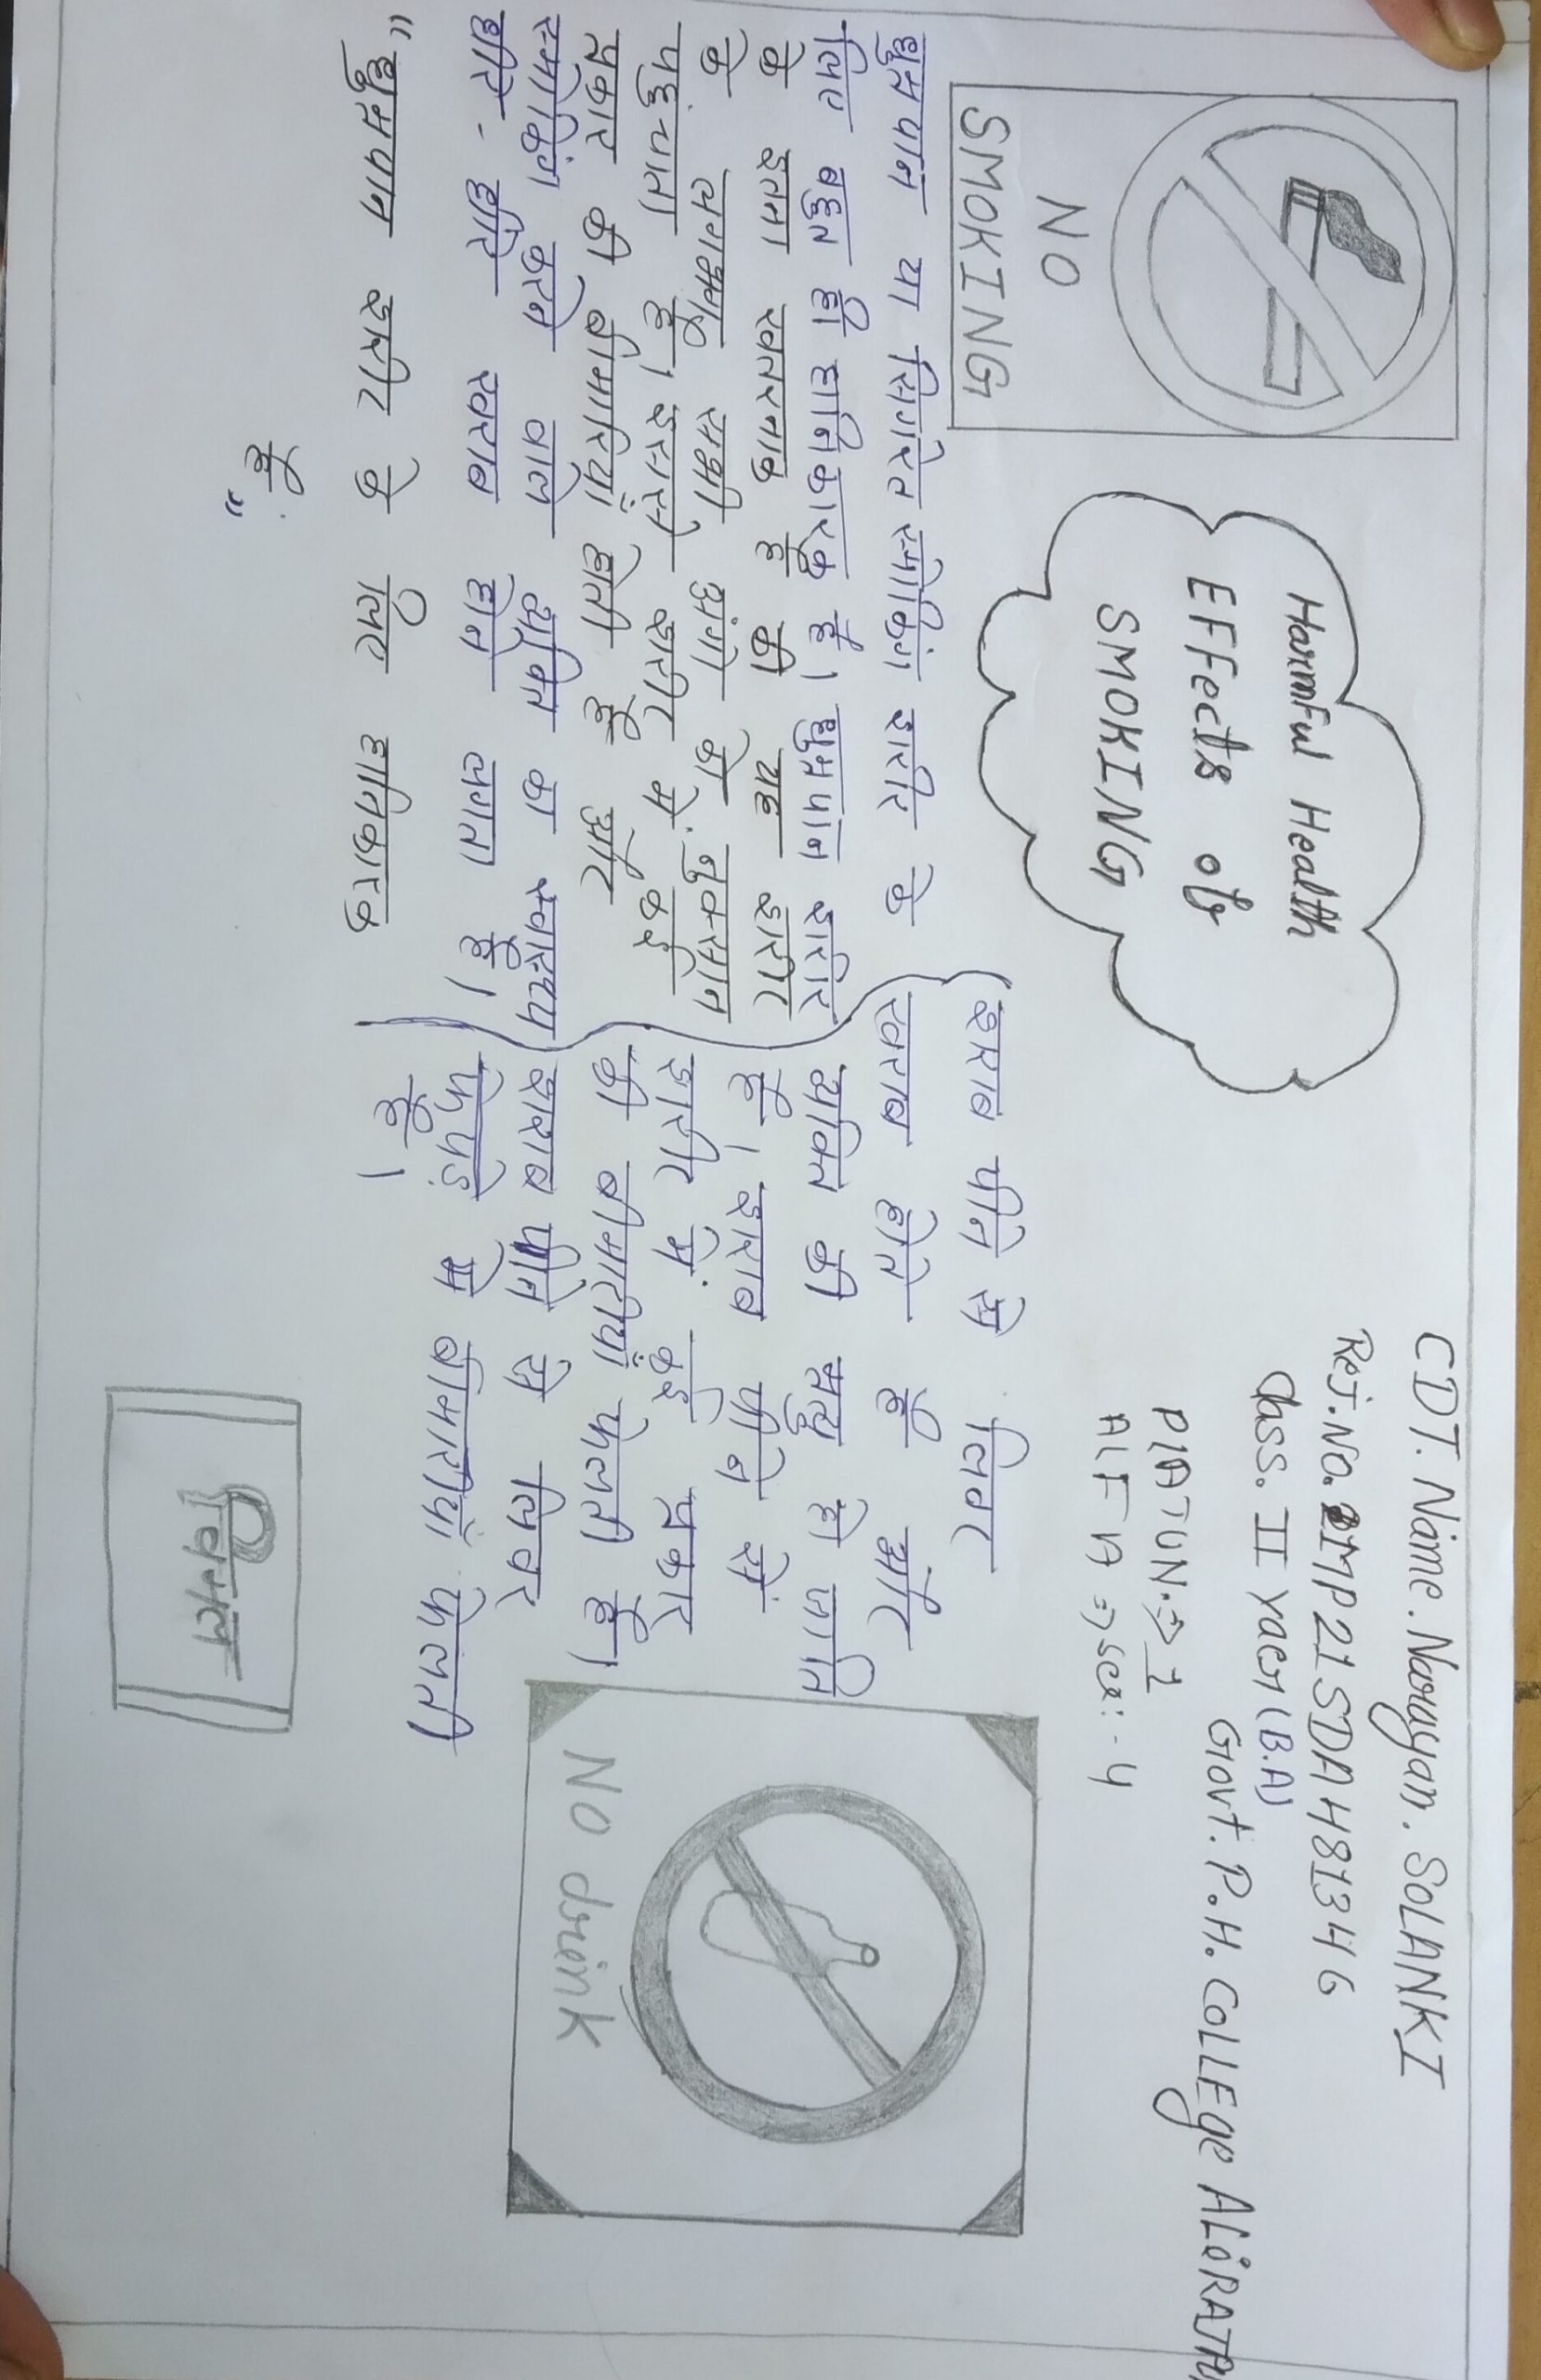 NO
SMOKING
Harmful Health
EFFects of
SMOKING
CDT. Name. Narayan. SOLANKI
Rej. No. MP21SDA481346
Class. II Year (B.A)
Govt. P.H. COLLEge ALiRAJPU
PlATUN. ⇒ 1
ALFA ⇒ sex: - 4
धुम्रपान या सिगरेत स्मोकिंग शरीर के
लिए बहुत ही हानिकारक है। धुम्रपान शरीर
के इतना खतरनाक है की यह शरीर
के लगभग सभी अंगो को नुकसान
पहुंचाता है। इससे शरीर में कई
प्रकार की बीमारियां होती है और
स्मोकिंग करने वाले व्यक्ति का स्वास्थ्य
धीरे - धीरे खराब होने लगता है।
"धुम्रपान शरीर के लिए हानिकारक
है"
शराब पीने से लिवर
खराब होते है और
व्यक्ति की मृत्यु हो जाति
है। शराब पीने से
शरीर में कई प्रकार
की बीमारीयाँ फेलती है।
शराब पीने से लिवर
फेपड़े मे बीमारीयाँ फेलती
है।
NO drink
विमल